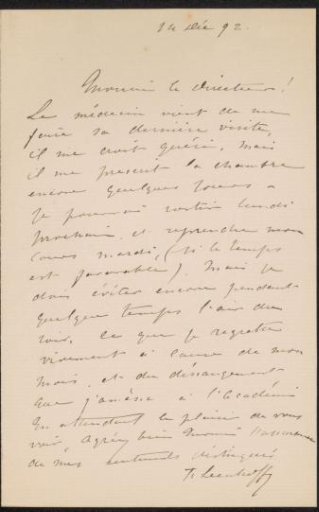 14 Déc 92.
Monsieur le directeur!
Le médecin vient de me
faire sa dernière visite,
il me croit guérie, mais
il me prescrit la chambre
encore quelques jours
Je pourrai sortir lundi
prochain et reprendre mon
cours mardi, (si le temps
est favorable). Mais je
dois éviter encore pendant
quelque temps l'air du
soir, ce que je regrette
vivement à cause de mon
mois, et du dérangement
que j'amène à l'Académie
En attendant le plaisir de vous
voir Agréez bien Monsieur l'assurance
de mes sentiments distingués
F. Leenhoff